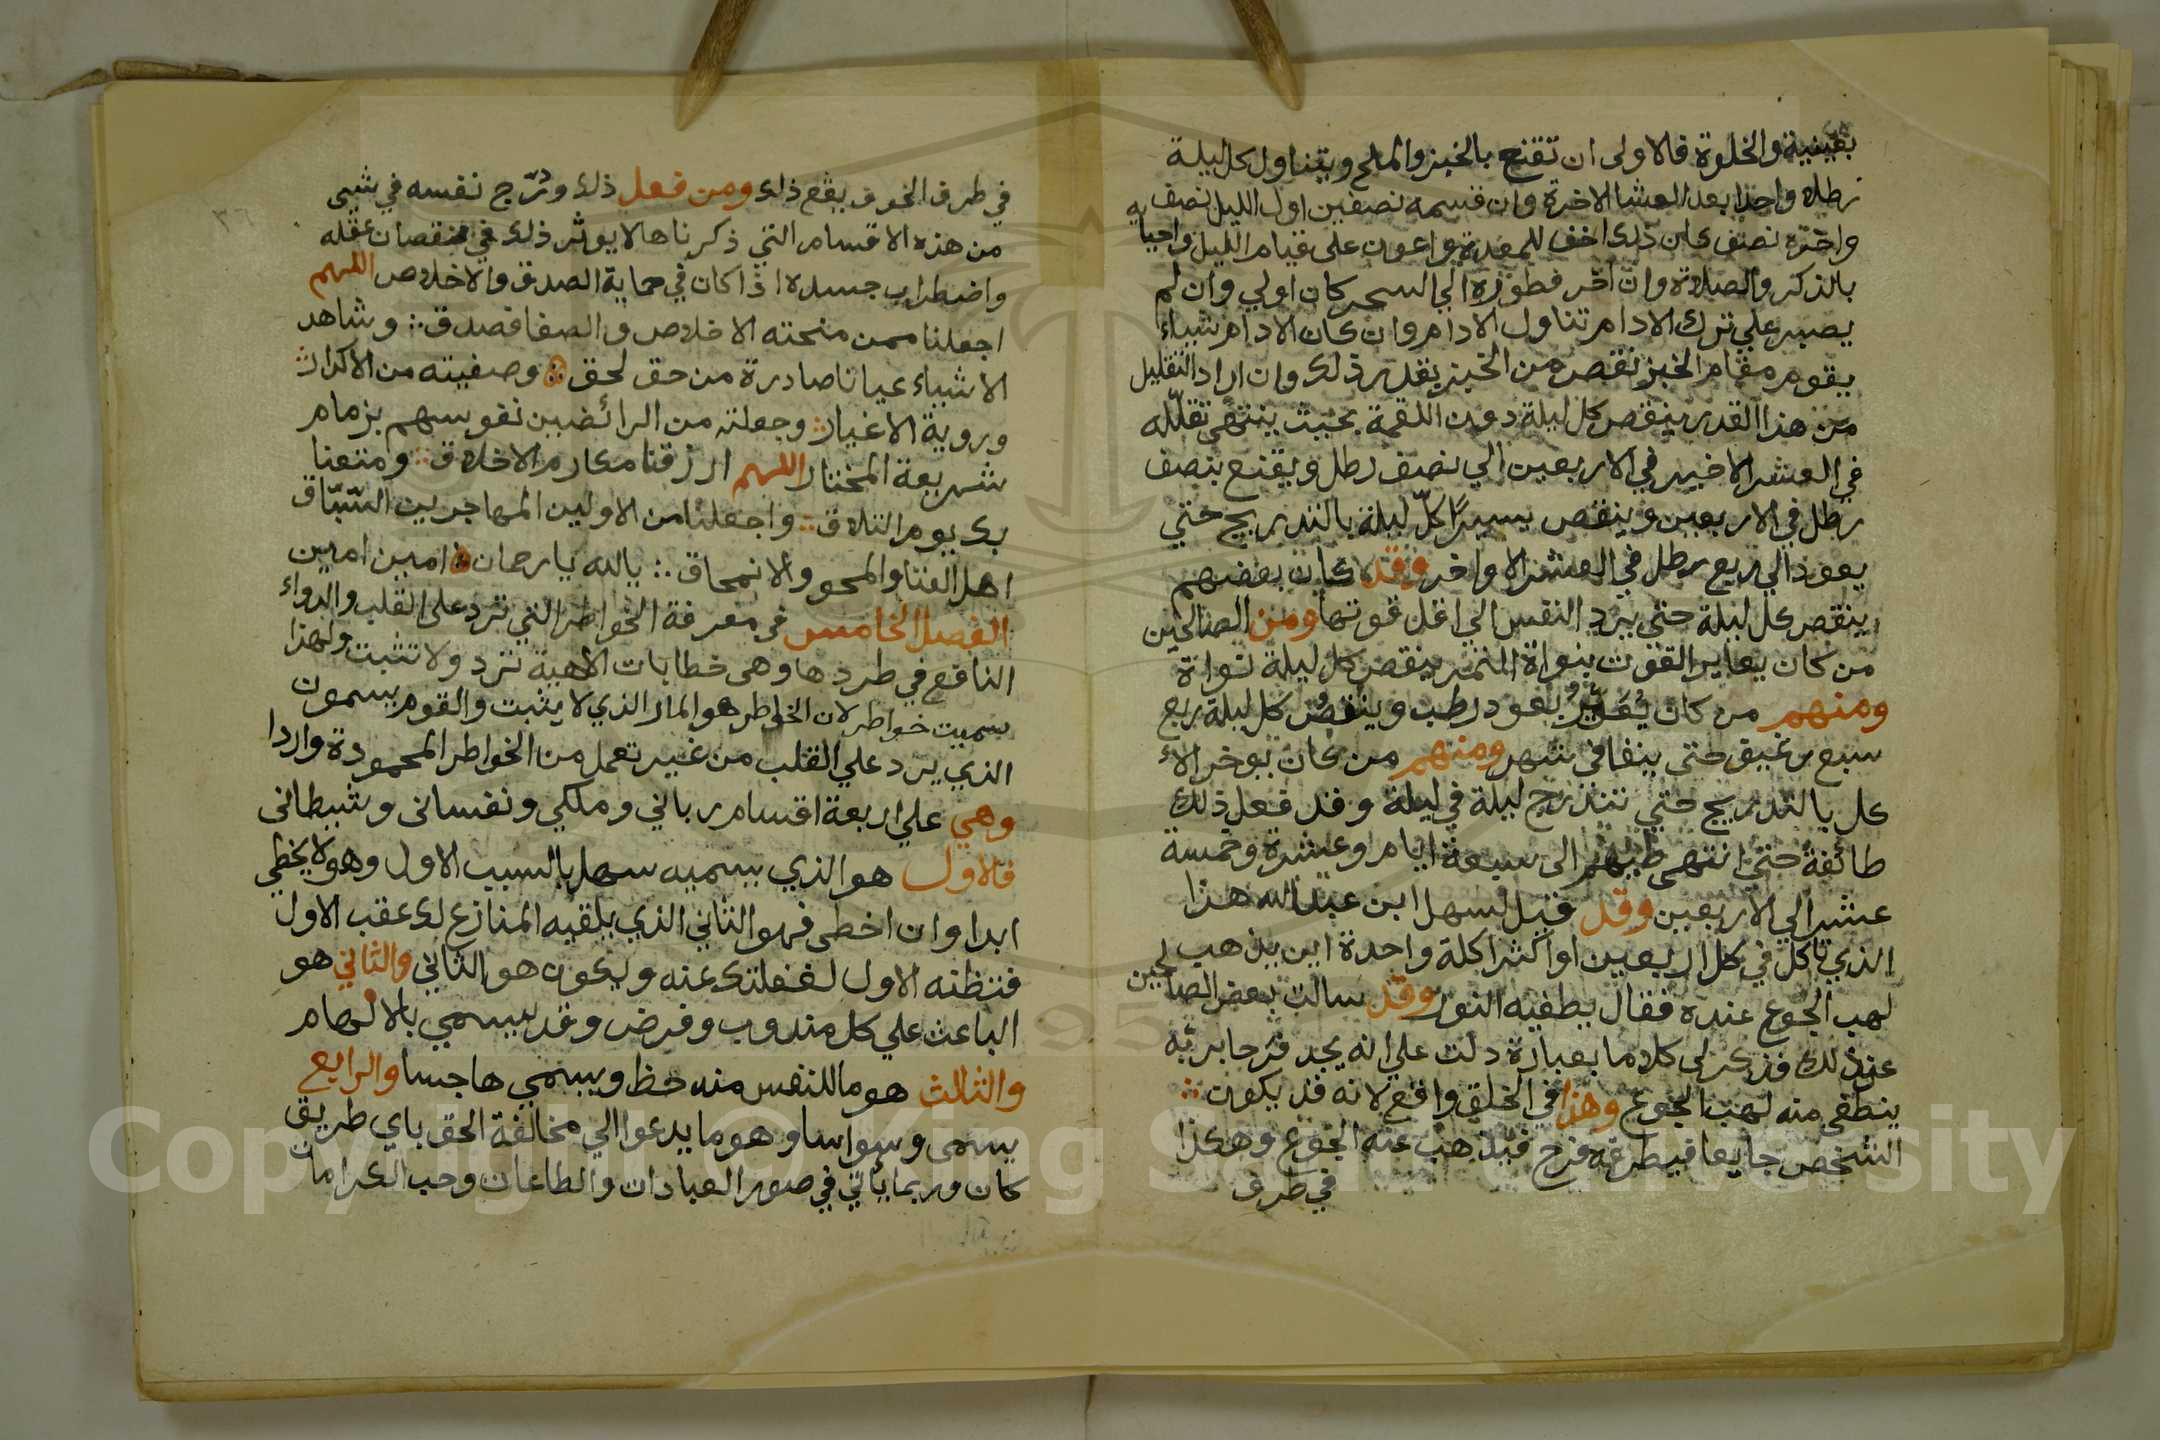 بقينية والخلوة فالاولى ان تقنع بالخبز والملح ويتناول كل ليلة
رطلا واحدا بعد العشا الاخرة وان قسمه نصفين اول الليل نصف
واخره نصف كان ذلك اخف للمعدة واعون على قيام الليل واحيايه
بالذكر والصلاة وان اخر فطوره الي السحر كان اولي وان لم
يصبر علي ترك الادام تناول الادام وان كان الادام شياء
يقوم مقام الخبز نقص من الخبز بقدر ذلك وان اراد التقليل
من هذا القدر ينقص كل ليلة دون اللقمة بحيث ينتهي تقلله
في العشر الاخير في الاربعين الي نصف رطل ويقنع بنصف
رطل في الاربعين وينقص يسيرا كل ليلة بالتدريج حتي
يعود الي ربع رطل في العشر الاواخر وقد كان بعضهم
ينقص كل ليلة حتي يرد النفس الي اقل قوتها ومن الصالحين
من كان يعاير القوت بنواة التمر ينقص كل ليلة نواة
ومنهم من كان يعير بعود رطب وينقص كل ليلة ربع
سبع رغيف حتى ينفا في شهر ومنهم من كان يوخر الأ
كل بالتدريج حتي تندرج ليلة في ليلة وقد فعل ذلك
طائفة حتي انتهى طيهم الى سبعة ايام وعشرة وخمسة
عشر الي الاربعين وقد قيل لسهل ابن عبد الله هذا
الذي تاكل في كل اربعين او اكثر اكلة واحدة اين يذهب
لهب الجوع عنده فقال يطفيه النور وقد سالت بعض الصالحين
عن ذلك فذكر لي كلاما بعبارة دلت علي انه يجد فرحا بربه
ينطفى منه لهب الجوع وهذا في الخلق واقع لانه قد يكون
الشخص جايعا فيطرقه فرح فيذهب عنه الجوع وهكذا
في طرف
في طرف الخوف يقع ذلك ومن فعل ذلك ودرج نفسه في شيى
من هذه الاقسام التي ذكرناها لا يوثر ذلك في نقصان عقله
واضطراب جسده اذا كان في حماية الصدق والاخلاص اللهم
اجعلنا ممن منحته الاخلاص والصفا فصدق وشاهد
الاشياء عيانا صادرة من حق لحق وصفيته من الاكدار
وروية الاغيار وجعلته من الرائضين نفوسهم بزمام
شريعة المختار اللهم ارزقنا مكارم الاخلاق ومتعنا
بك يوم التلاق واجعلنا من الاولين المهاجرين السباق
اهل الفنا والمحو والانمحاق يالله يا رحمان امين امين
الفصل الخامس في معرفة الخواطر التي ترد على القلب والدواء
النافع في طردها وهى خطابات الاهية ترد ولا تثبت ولهذا
سميت خواطر لان الخاطر هو المار الذي لا يثبت والقوم يسمون
الذي يرد علي القلب من غير تعمل من الخواطر المحمودة واردا
وهي علي اربعة اقسام رباني وملكي ونفسانى وشيطانى
فالاول هو الذي يسميه سهل بالسبب الاول وهو لا يخطي
ابدا وان اخطى فهو الثاني الذي يلقيه المنازع لك عقب الاول
فتظنه الاول لغفلتك عنه ويكون هو الثاني والثاني هو
الباعث علي كل مندوب وفرض وقد يسمي بالالهام
والثالث هو ما للنفس منه حظ ويسمي هاجسا والرابع
يسمى وسواسا وهو ما يدعوا الي مخالفة الحق باي طريق
كان وربما ياتي في صور العبادات والطاعات وحب الكرامات
Copyright © King Saud University